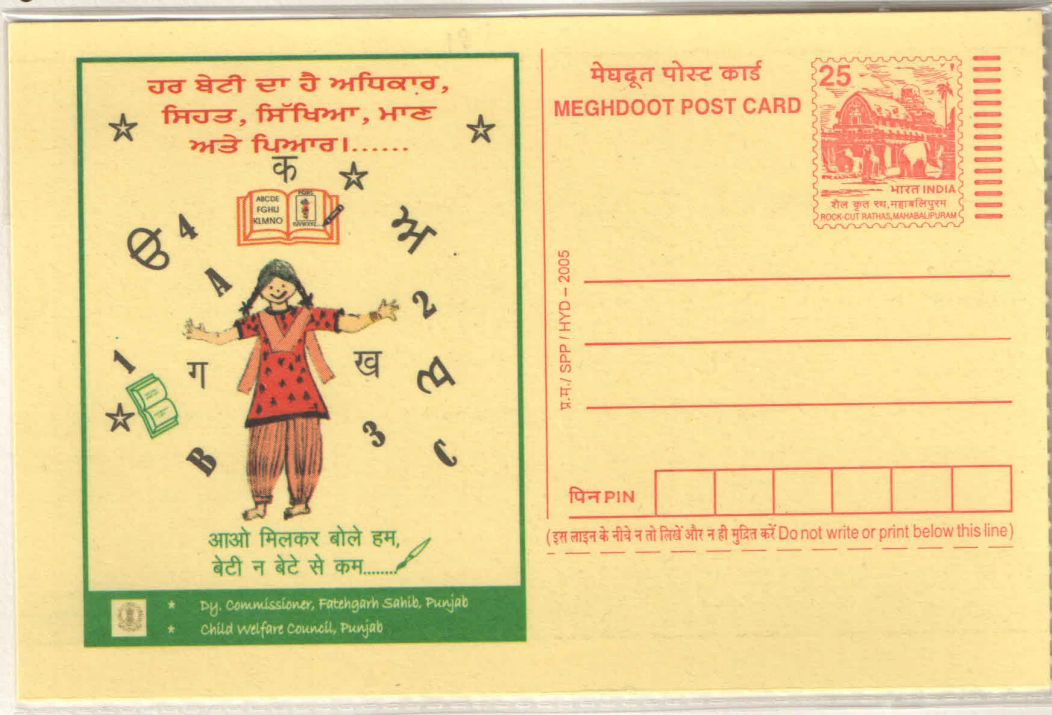 ਹਰ ਬੇਟੀ ਦਾ ਹੈ ਅਧਿਕਾਰ,
ਸਿਹਤ, ਸਿੱਖਿਆ, ਮਾਣ
ਅਤੇ ਪਿਆਰ।......
क
ABCDE
FGHIJ
KLMNO
ੳ
4
ਅ
A
2
1
ग
ख
ੲ
B
3
C
आओ मिलकर बोले हम,
बेटी न बेटे से कम........
* Dy. Commissioner, Fatehgarh Sahib, Punjab
* Child Welfare Council, Punjab
मेघदूत पोस्ट कार्ड
MEGHDOOT POST CARD
25
भारत INDIA
शैल कृत रथ,महाबलिपुरम
ROCK-CUT RATHAS,MAHABALIPURAM
प्र.म./ SPP / HYD – 2005
पिन PIN
(इस लाइन के नीचे न तो लिखें और न ही मुद्रित करें Do not write or print below this line)